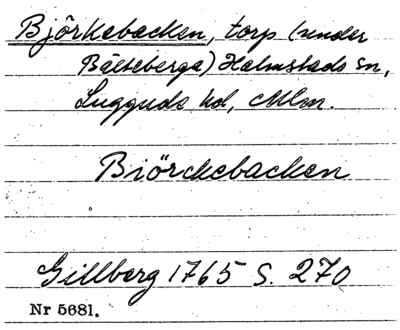 Björkebacken, torp (under
Bälteberga) Halmstads sn,
Luggude hd, Mlm.
Biörckebacken
Gillberg 1765 S. 270
Nr 5681.